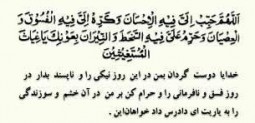 اَللّهُمَّ حَبِّبْ اِلَیَّ فیهِ الْاِحْسانَ وَ کَرِّهْ اِلَیَّ فیهِ الْفُسُوقَ وَ
الْعِصْیانَ وَ حَرِّمْ عَلَیَّ فیهِ السَّخَطَ وَ النّیرانَ بِعَوْنِکَ یا غِیاثَ
الْمُسْتَغیثینَ
خدایا دوست گردان بمن در این روز نیکی را و ناپسند بدار در
روز فسق و نافرمانی را و حرام کن بر من در آن خشم و سوزندگی
را به یاریت ای دادرس داد خواهان این.